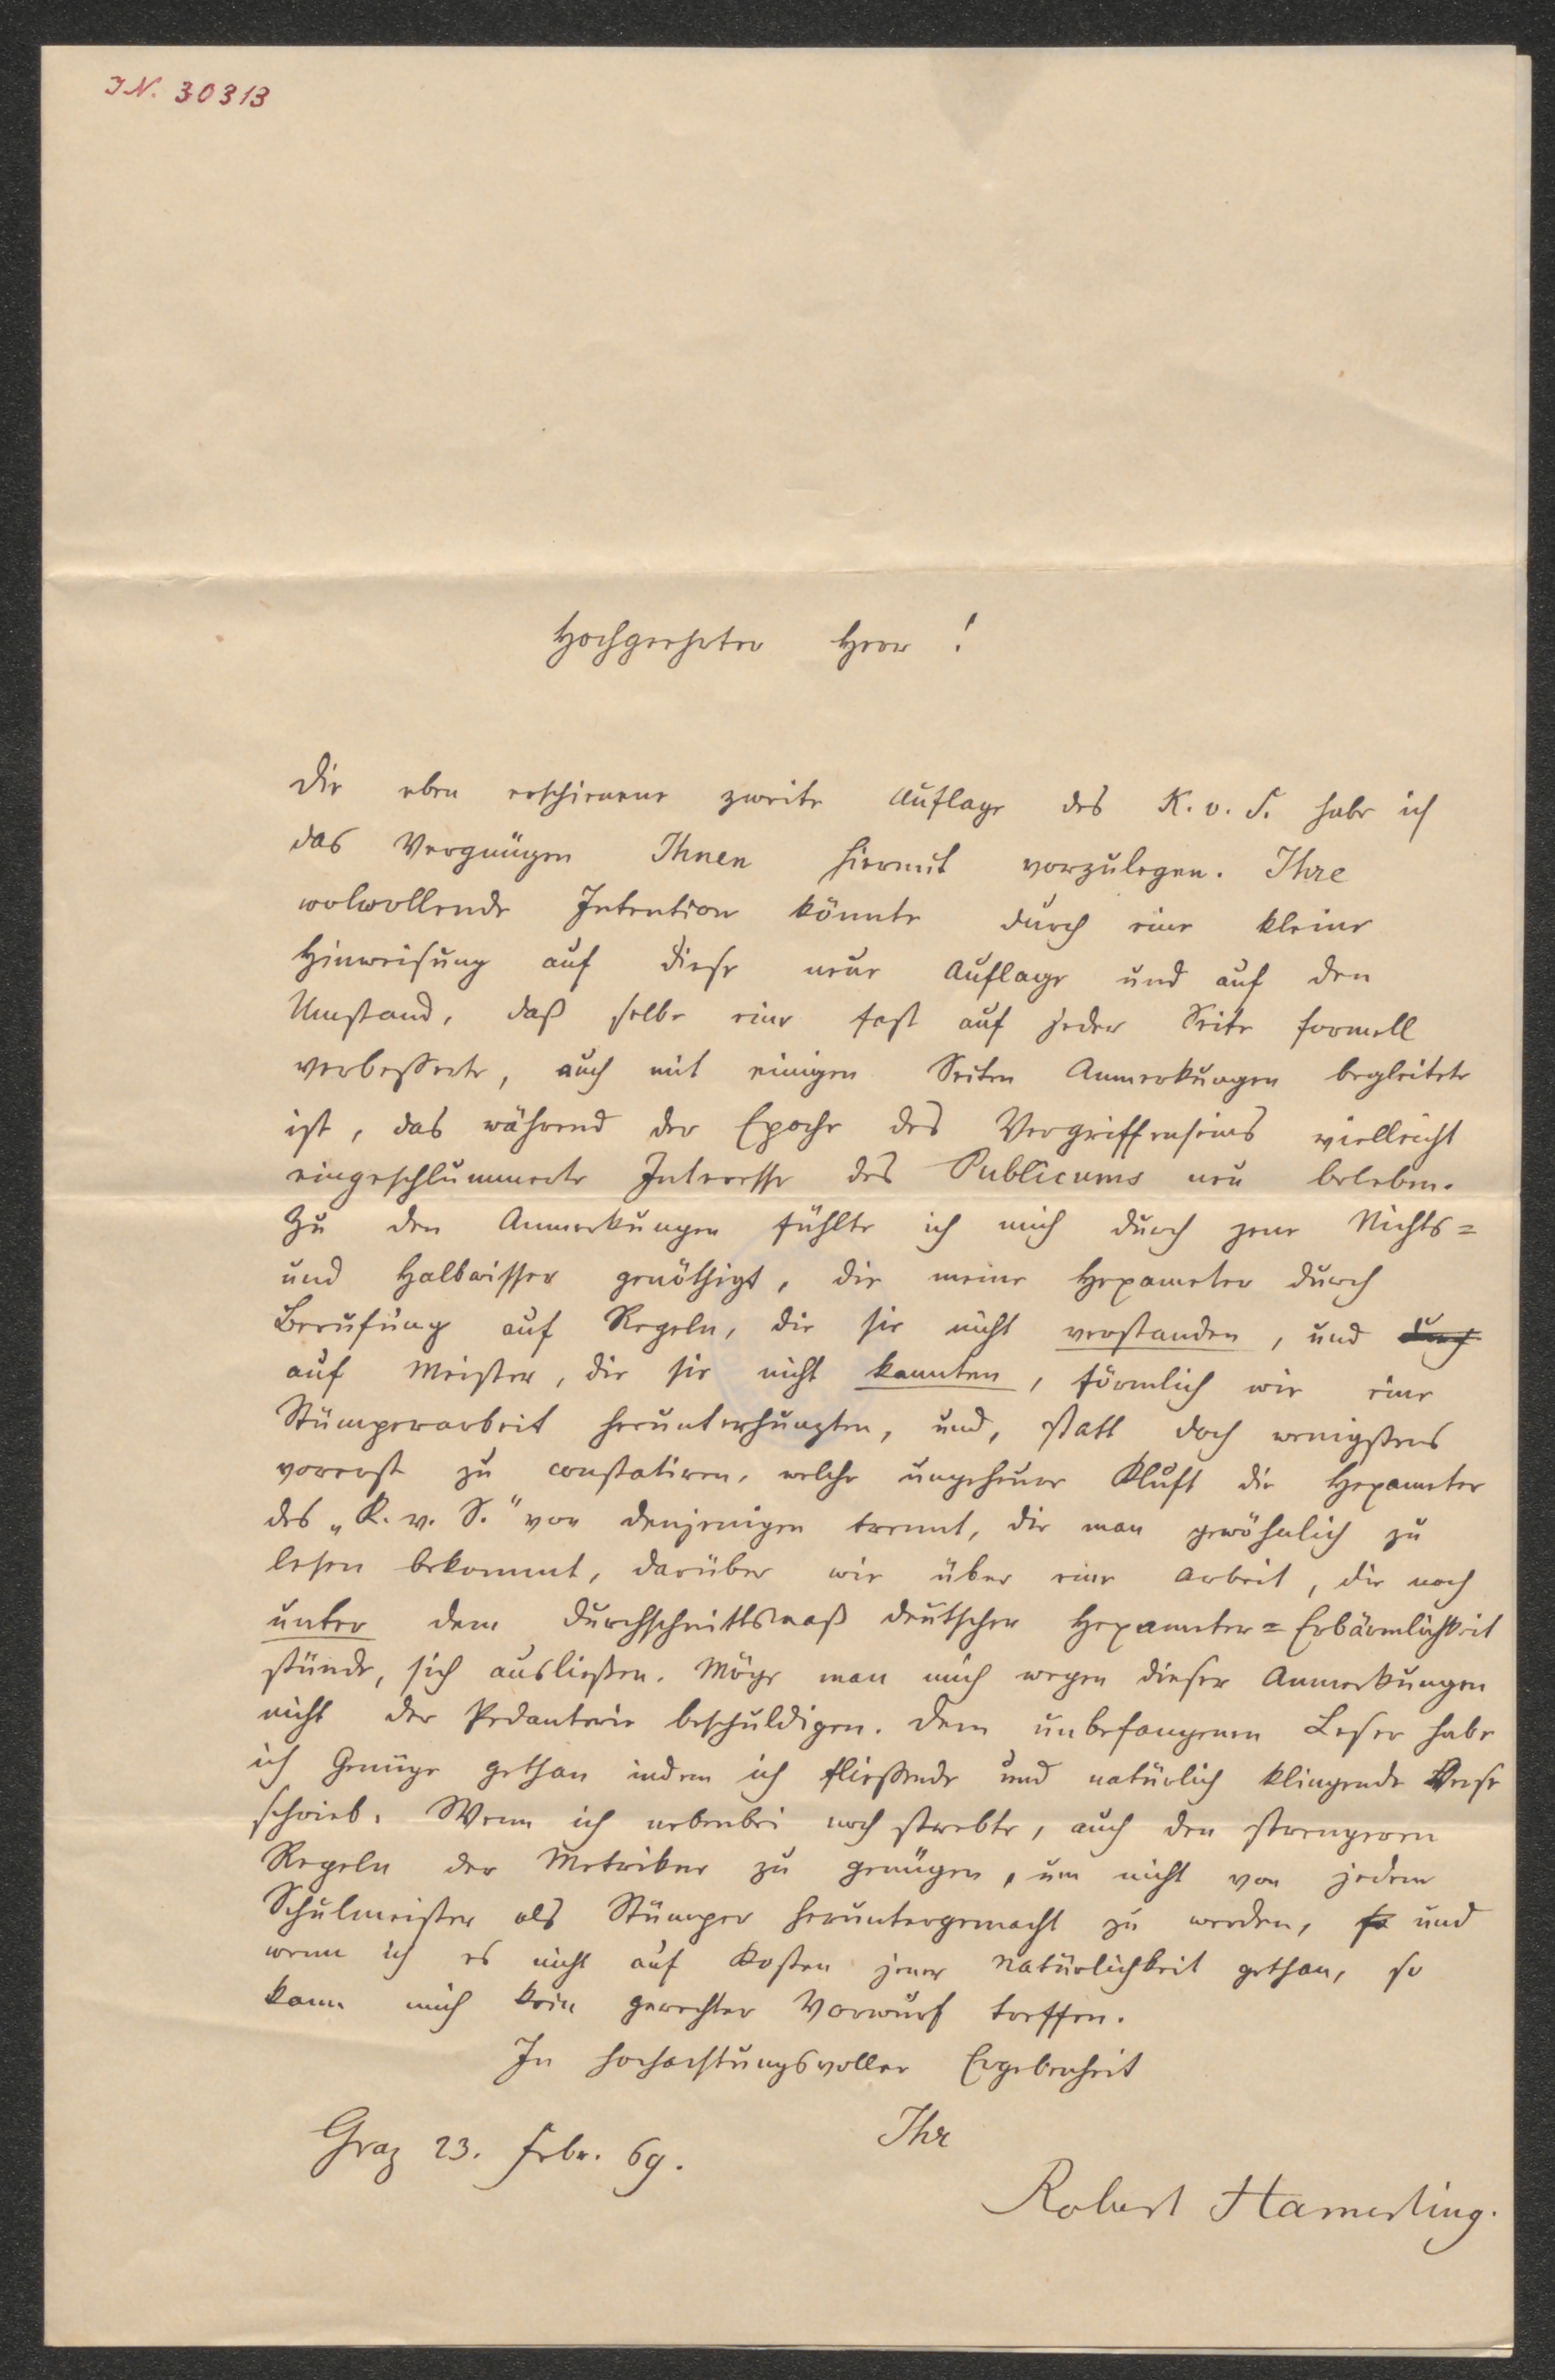 IN. 30313
Hochgeehrter Herr !
Die eben erschienene zweite Auflage des K. v. S. habe ich
das Vergnügen Ihnen hiermit vorzulegen. Ihre
wolwollende Intention könnte durch eine kleine
Hinweisung auf diese neue Auflage und auf den
Umstand, daß selbe eine fast auf jeder Seite formell
verbesserte, auch mit einigen Seiten Anmerkungen begleitete
ist, das während der Epoche des Vergriffenseins vielleicht
eingeschlummerte Interesse des Publicums neu beleben.
Zu den Anmerkungen fühlte ich mich durch jene Nichts=
und Halbwisser genöthigt, die meine Hexameter durch
Berufung auf Regeln, die sie nicht verstanden, und durch
auf Meister, die sie nicht kannten, förmlich wie eine
Stümperarbeit herunterhunzten, und, statt doch wenigstens
vorerst zu constatiren, welche ungeheure Kluft die Hexameter
des „K. v. S." von denjenigen trennt, die man gewöhnlich zu
lesen bekommt, darüber wie über eine Arbeit, die noch
unter dem Durchschnittsmaß deutscher Hexameter=Erbärmlichkeit
stünde, sich ausließen. Möge man mich wegen dieser Anmerkungen
nicht der Pedanterie beschuldigen. Dem unbefangenen Leser habe
ich Genüge gethan indem ich fließende und natürlich klingende Verse
schrieb. Wenn ich nebenbei noch strebte, auch den strengeren
Regeln der Metriker zu genügen, um nicht von jedem
Schulmeister als Stümper heruntergemacht zu werden, so und
wenn ich es nicht auf Kosten jener Natürlichkeit gethan, so
kann mich kein gerechter Vorwurf treffen.
In hochachtungsvoller Ergebenheit
Ihr
Graz 23. Febr. 69.
Robert Hamerling.